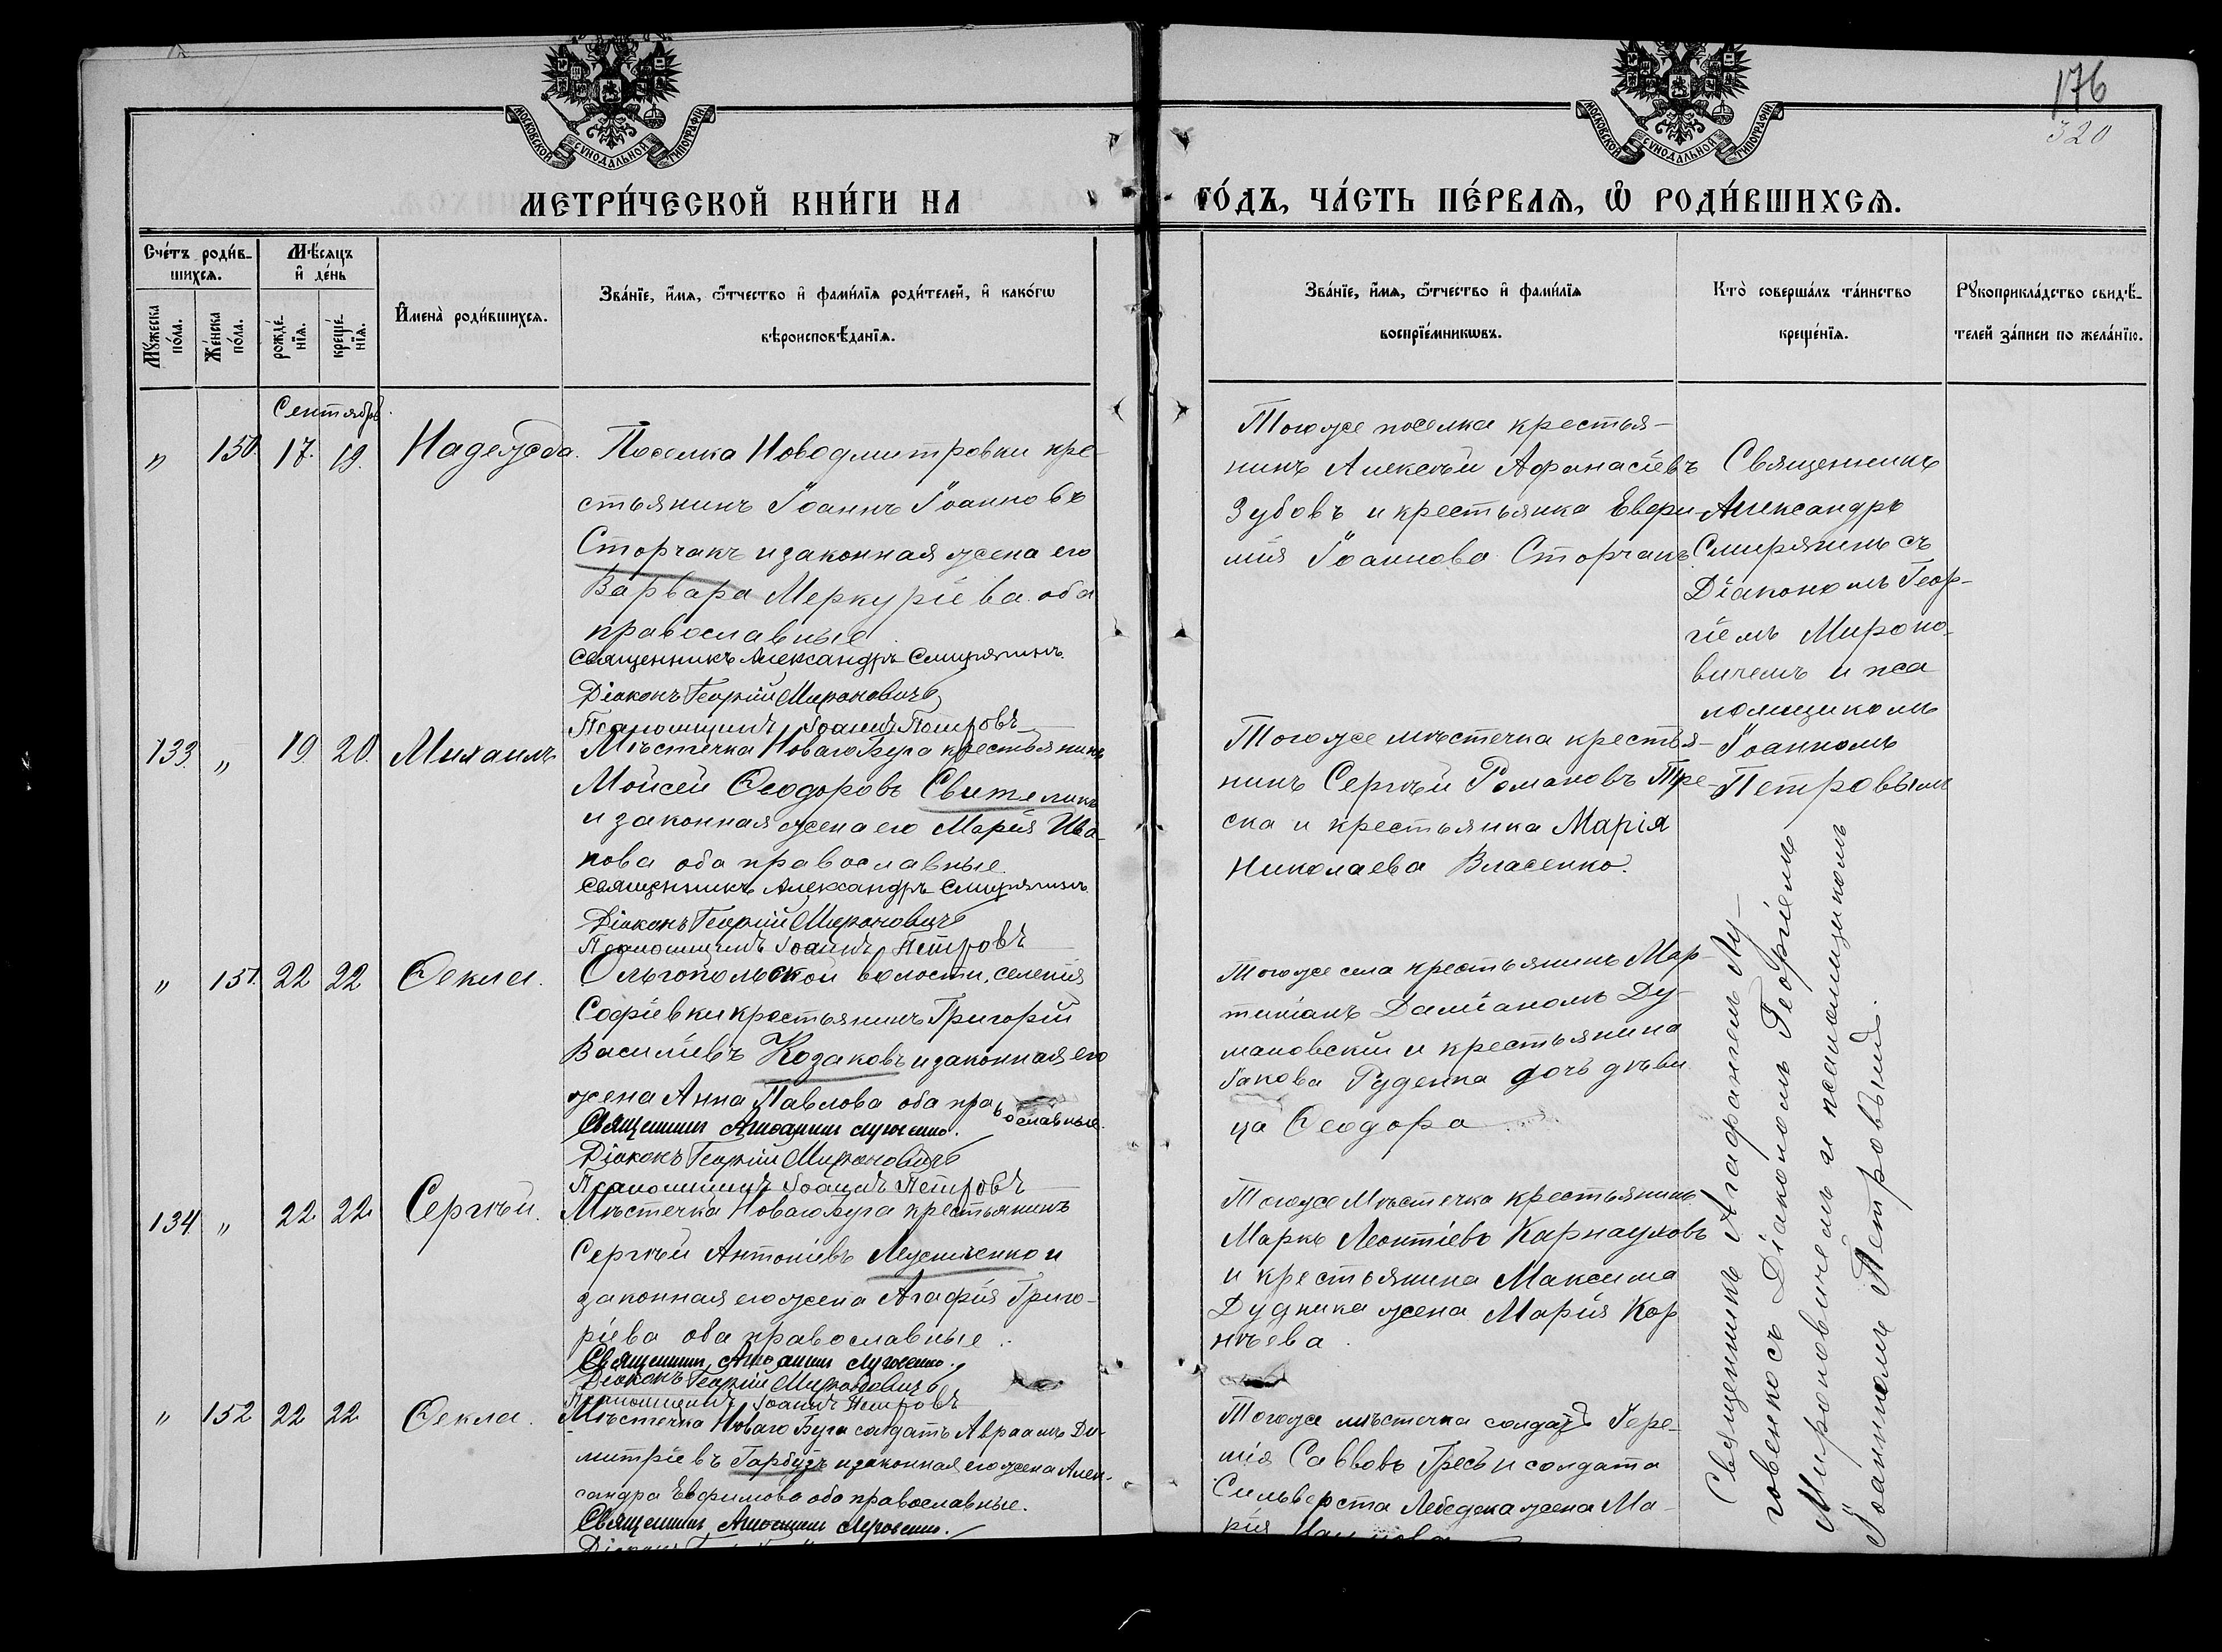 176
320
МОСКОВСКОЙ СѴНОДАЛЬНОЙ ТИПОГРАФІИ
МОСКОВСКОЙ СѴНОДАЛЬНОЙ ТИПОГРАФІИ
МЕТРИ́ЧЕСКОЙ КНИ́ГИ НА
ГО́ДЪ, ЧА́СТЬ ПЕ́РВАѦ, Ѡ҆ РОДИ́ВШИХСѦ.
Сче́тъ роди́в-
шихсѧ.
Мꙋ́жеска
по́ла.
Же́нска
по́ла.
Мѣ́сѧцъ
и҆ де́нь
рожде́-
нїѧ.
креще́-
нїѧ.
И҆мена̀ роди́вшихсѧ.
Зва́нїе, и҆́мѧ, ѻ҆́тчество и҆ фами́лїѧ роди́телей, и҆ како́гѡ
вѣроисповѣ́данїѧ.
Зва́нїе, и҆́мѧ, ѻ҆́тчество и҆ фами́лїѧ
воспрїе́мникѡвъ.
Кто̀ соверша́лъ та́инство
креще́нїѧ.
Рꙋкоприкла́дство свидѣ́-
телей за́писи по жела́нїю.
Сентябрь.
" 150. 17. 19. Надежда.
Поселка Новодмитровки кре-
стьянинъ Іоаннъ Іоанновъ
Сторчакъ и законная жена его
Варвара Меркуріева оба
православные.
Священникъ Александръ Смирягинъ.
Діаконъ Георгій Мироновичъ
Псаломщикъ Іоаннъ Петровъ
Тогоже поселка крестья-
нинъ Алексѣй Афанасіевъ
Зубовъ и крестьянка Евфи-
мія Іоаннова Сторчакъ.
Священникъ
Александръ
Смирягинъ съ
Діакономъ Геор-
гіемъ Мироно-
вичемъ и пса
ломщикомъ
Іоанномъ
Петровымъ
133. " 19. 20. Михаилъ
Мѣстечка Новаго Буга крестьянинъ
Мойсей Ѳеодоровъ
и законная жена его Марія Ива-
нова оба православные.
Священникъ Александръ Смирягинъ.
Діаконъ Георгій Мироновичъ
Псаломщикъ Іоаннъ Петровъ
Тогоже мѣстечка крестья-
нинъ Сергѣй Романовъ Тре-
ска и крестьянка Марія
Николаева Власенко.
" 151. 22 22 Ѳекла.
Ольгопольской волости, селенія
Софіевки крестьянинъ Григорій
Василіевъ Козаковъ и законная его
жена Анна Павлова оба православные.
Священникъ
Діаконъ Георгій Мироновичъ
Псаломщикъ Іоаннъ Петровъ
Тогоже села крестьянинъ Мар-
тиніанъ Даміаномъ Ду-
мановскій и крестьянина
Іакова Руденка дочь дѣви
ца Ѳеодора
134. " 22 22 Сергѣй.
Мѣстечка Новаго Буга крестьянинъ
Сергѣй Антоніевъ и
законная его жена Агафія Григо-
ріева оба православные.
Священникъ
Діаконъ Георгій Мироновичъ
Псаломщикъ Іоаннъ Петровъ
Тогоже Мѣстечка крестьянинъ
Маркъ Леонтіевъ Карнауховъ
и крестьянина Максима
Дудника жена Марія Кор
нѣева.
" 152 22 22 Ѳекла.
Мѣстечка Новаго Буга солдатъ Авраамъ Ди-
митріевъ Гарбузъ и законная его жена Алек-
сандра Евфимова оба православные.
Священникъ
Тогоже мѣстечка солдатъ Іере-
мія Саввовъ Гресь и солдата
Сильверста жена Ма-
рія
Священникъ Агафангелъ Лу-
говенко съ Діакономъ Георгіемъ
Мироновичемъ и псаломщикомъ
Іоанномъ Петровымъ.